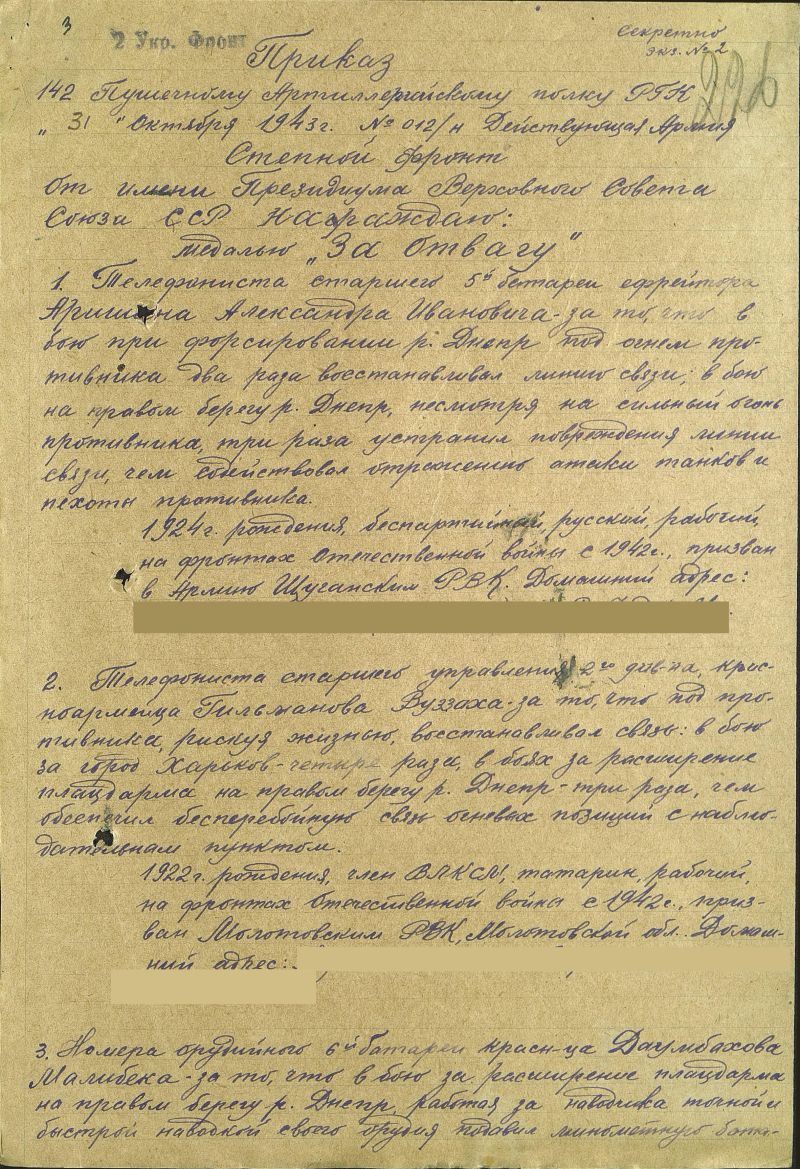 3
2 Укр. Фронт
Секретно
экз. № 2
Приказ
142 Пушечному Артиллерийскому полку РГК
„31" Октября 1943г. № 012/н Действующая Армия
Степной фронт
От имени Президиума Верховного Совета
Союза ССР Награждаю:
медалью „За Отвагу"
1. Телефониста старшего 5й батареи ефрейтора
Александра Ивановича - за то, что в
бою при форсировании р. Днепр под огнем про-
тивника два раза восстанавливал линию связи; в бою
на правом берегу р. Днепр, несмотря на сильный огонь
противника, три раза устранил повреждения линии
связи, чем содействовал отражению атаки танков и
пехоты противника.
1924г. рождения, беспартийный, русский, рабочий,
на фронтах Отечественной войны с 1942г., призван
в Армию Щучанским РВК. Домашний адрес:
2. Телефониста старшего управления 2го див-на, крас-
ноармейца Гильманова Вуззаха - за то, что под про-
тивника, рискуя жизнью, восстанавливал связь: в бою
за город Харьков - четыре раза, в боях за расширение
плацдарма на правом берегу р. Днепр - три раза, чем
обеспечил бесперебойную связь огневых позиций с наблю-
дательным пунктом.
1922г. рождения, член ВЛКСМ, татарин, рабочий,
на фронтах Отечественной войны с 1942г., приз-
ван Молотовским РВК, Молотовской обл. Домаш-
ний адрес:
3. Номера орудийного 6й батареи красн-ца Даумбахова
Малибека - за то, что в бою за расширение плацдарма
на правом берегу р. Днепр, работая за наводчика точной и
быстрой наводкой своего орудия подавил минометную бата-